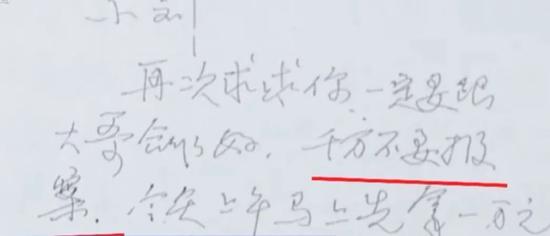 小刘
再次求求你一定要跟
大哥合作好.千万不要报
案.今天上午马上先拿一万元